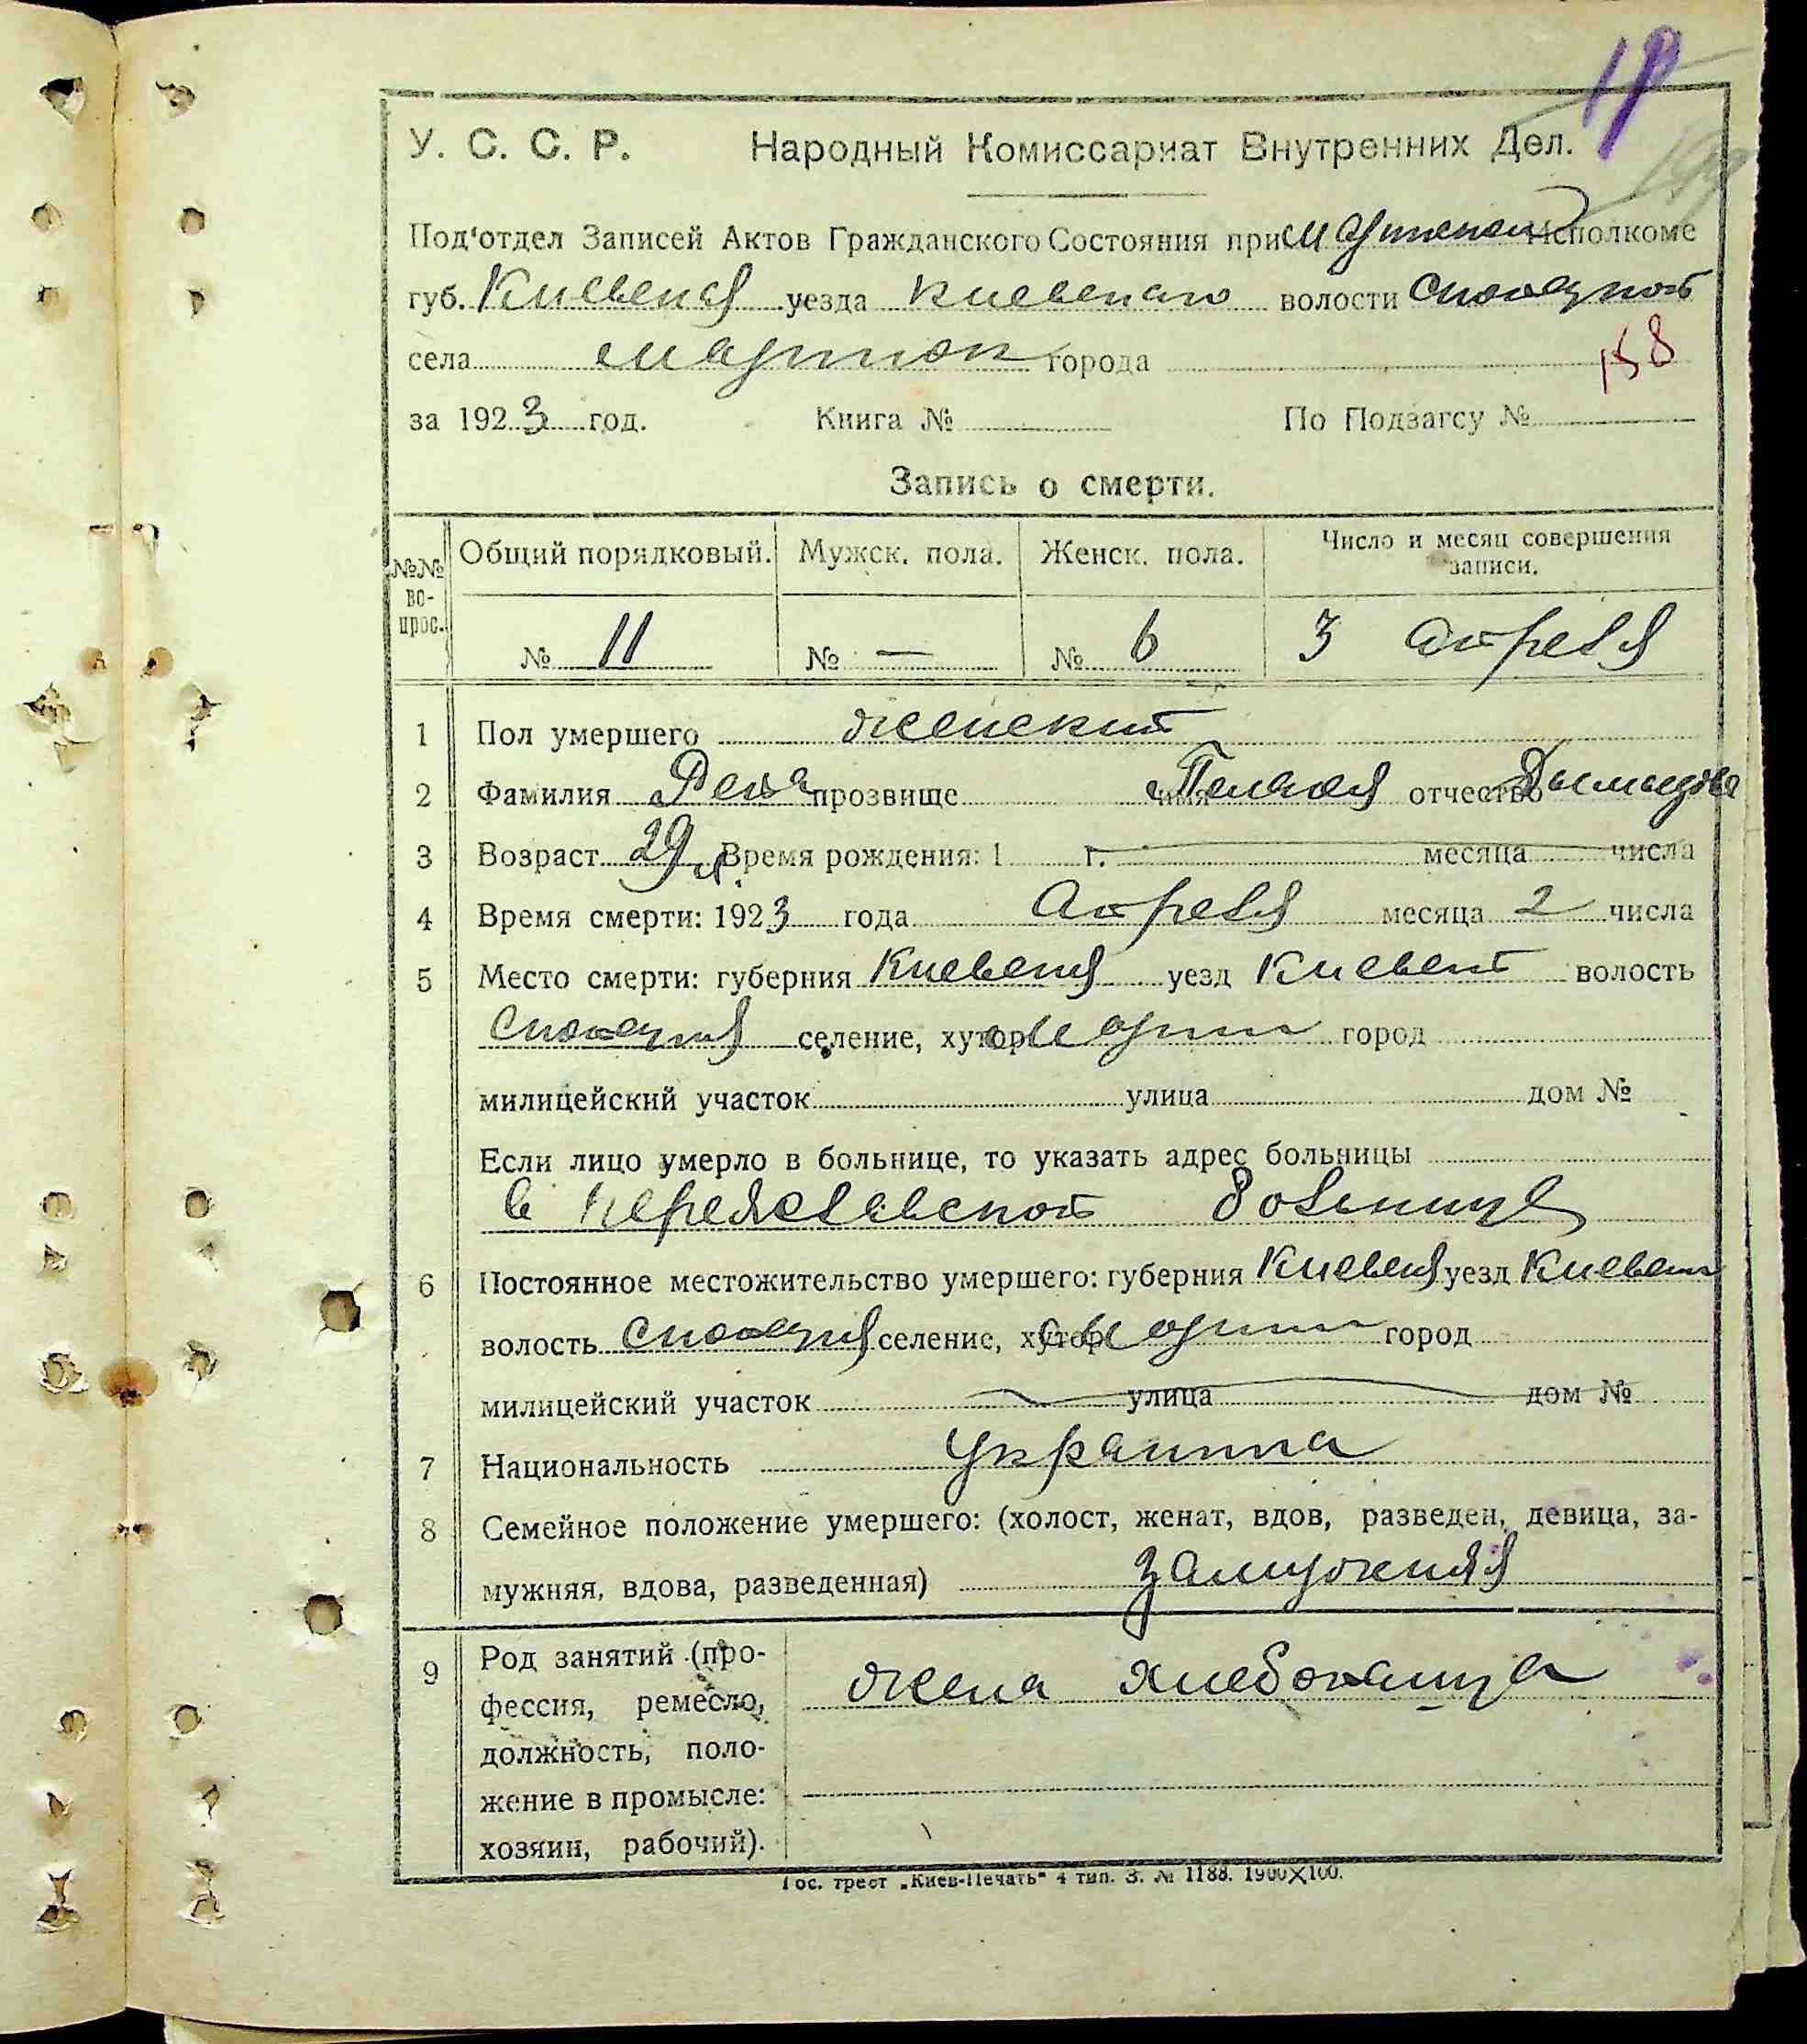 18
У. С. С. Р. Народный Комиссариат Внутренних Дел.
Под'отдел Записей Актов Гражданского Состояния при Исполкоме
губ. Киевская уезда Киевского волости
села города
158
за 1923 год. Книга № По Подзагсу №
Запись о смерти.
№№ вопрос. Общий порядковый. Мужск. пола. Женск. пола. Число и месяц совершения записи.
№ 11 № — № 6 3 апреля
1 Пол умершего женский
2 Фамилия Рева прозвище имя Пелагея отчество
3 Возраст 29 л. Время рождения: 1 г. месяца числа
4 Время смерти: 1923 года апреля месяца 2 числа
5 Место смерти: губерния Киевская уезд Киевский волость
селение, хутор город
милицейский участок улица дом №
Если лицо умерло в больнице, то указать адрес больницы
в Переяславской больнице
6 Постоянное местожительство умершего: губерния Киевская уезд Киевский
волость селение, хутор город
милицейский участок улица дом №
7 Национальность Украинка
8 Семейное положение умершего: (холост, женат, вдов, разведен, девица, за-
мужняя, вдова, разведенная) замужняя
9 Род занятий (про- жена хлебопашца
фессия, ремесло,
должность, поло-
жение в промысле:
хозяин, рабочий).
Гос. трест „Киев-Печать" 4 тип. З. № 1188. 1900×100.